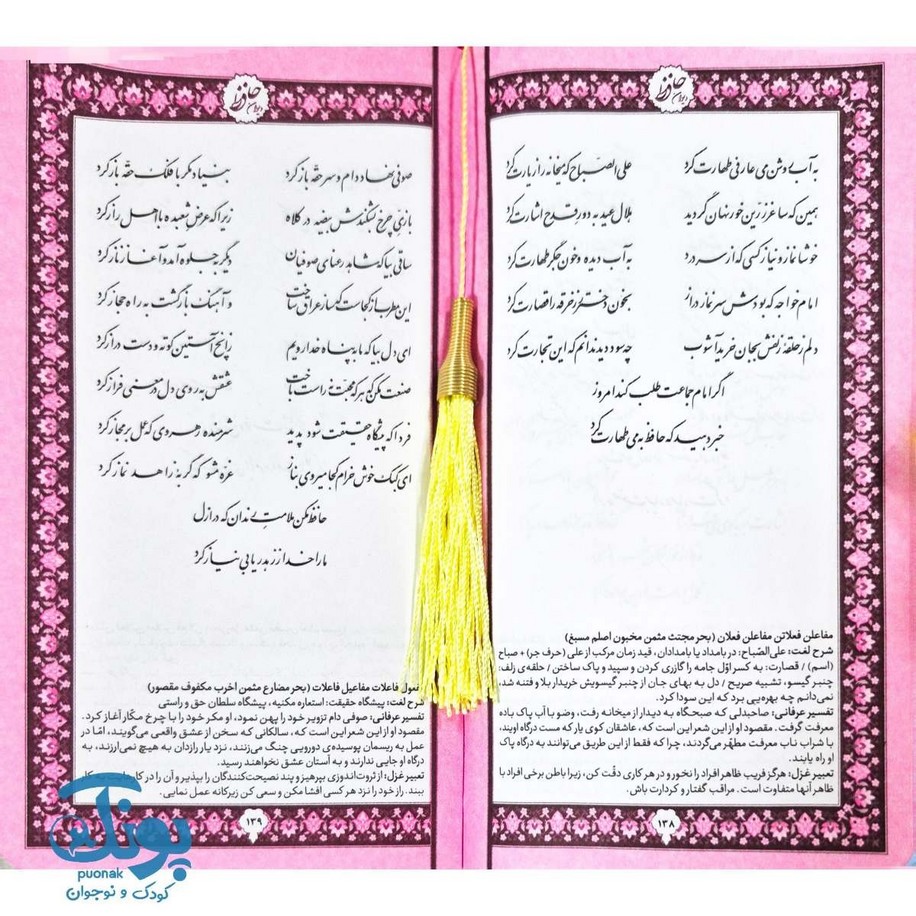 دیوان حافظ
به آب روشن می عارفی طهارت کرد
علی الصباح که میخانه را زیارت کرد
همین که ساغر زرین خور نهان گردید
هلال عید به دور قدح اشارت کرد
خوشا نماز و نیاز کسی که از سر درد
به آب دیده و خون جگر طهارت کرد
امام خواجه که بودش سر نماز دراز
بخون دختر رز خرقه را قصارت کرد
دلم ز حلقهٔ زلفش بجان خرید آشوب
چه سود دید ندانم که این تجارت کرد
اگر امام جماعت طلب کند امروز
خبر دهید که حافظ به می طهارت کرد
مفاعلن فعلاتن مفاعلن فعلان (بحر مجتث مثمن مخبون اصلم مسبغ)
شرح لغت: علی‌الصّباح: در بامداد یا بامدادان، قید زمان مرکب از علی (حرف جر) + صباح
(اسم) / قصارت: به کسر اوّل جامه را گازری کردن و سپید و پاک ساختن / حلقه‌ی زلف:
چنبر گیسو، تشبیه صریح / دل به بهای جان از چنبر گیسویش خریدار بلا و فتنه شد،
نمی‌دانم چه بهره‌یی برد که این سودا کرد.
تفسیر عرفانی: صاحبدلی که صبحگاه به دیدار از میخانه رفت، وضو با آب پاک باده
معرفت گرفت. مقصود او از این شعر این است که، عاشقان کوی یار که مست درگاه اویند،
با شراب ناب معرفت مطهّر می‌گردند، چرا که فقط از این طریق می‌توانند به درگاه پاک
او راه یابند.
تعبیر غزل: هرگز فریب ظاهر افراد را نخور و در هر کاری دقّت کن، زیرا باطن برخی افراد با
ظاهر آنها متفاوت است. مراقب گفتار و کردارت باش.
۱۳۸
دیوان حافظ
صوفی نهاد دام و سر حقه باز کرد
بنیاد مکر با فلک حقه باز کرد
بازی چرخ بشکندش بیضه در کلاه
زیرا که عرض شعبده با اهل راز کرد
ساقی بیا که شاهد رعنای صوفیان
دیگر جلوه آمد و آغاز ناز کرد
این مطرب از کجاست که ساز عراق ساخت
و آهنگ بازگشت به راه حجاز کرد
ای دل بیا که ما به پناه خدا رویم
زانچ آستین کوته و دست دراز کرد
صنعت مکن که هر که محبت نه راست باخت
عشقش به روی دل در معنی فراز کرد
فردا که پیشگاه حقیقت شود پدید
شرمنده رهروی که عمل بر مجاز کرد
ای کبک خوش خرام کجا میروی بناز
غره مشو که گربه زاهد نماز کرد
حافظ مکن ملامت رندان که در ازل
ما را خدا ز زهد ریا بی نیاز کرد
فاعلات مفاعیل فاعلات (بحر مضارع مثمن اخرب مکفوف مقصور)
شرح لغت: پیشگاه حقیقت: استعاره مکنیه، پیشگاه سلطان حق و راستی
تفسیر عرفانی: صوفی دام تزویر خود را پهن نمود، او مکر خود را با چرخ مکّار آغاز کرد.
مقصود او از این شعر این است که، سالکانی که سخن از عشق واقعی می‌گویند، امّا در
عمل به ریسمان پوسیده‌ی دورویی چنگ می‌زنند، نزد یار رازدان به هیچ نمی‌ارزند، به
درگاه او جایی ندارند و به آستان عشق نخواهند رسید.
تعبیر غزل: از ثروت‌اندوزی بپرهیز و پند نصیحت‌کنندگان را بپذیر و آن را در کارهایت به کار
ببند. راز خود را نزد هر کسی افشا مکن و سعی کن زیرکانه عمل نمایی.
۱۳۹
پونک
puonak
کودک و نوجوان